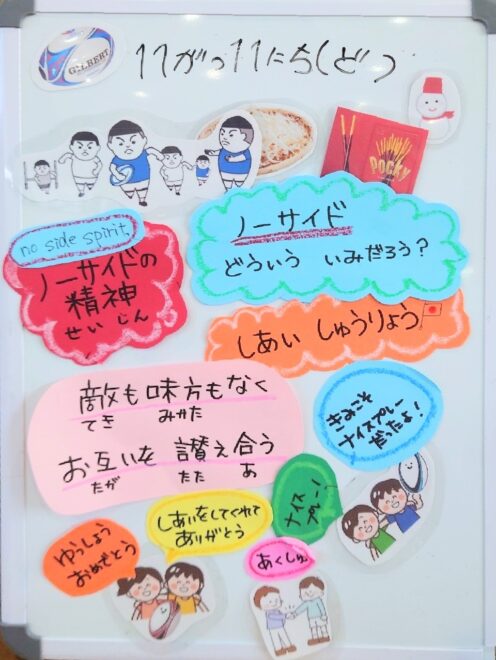 GILBERT
11がつ11にち(ど)
POCKY
no side spirit
ノーサイドの
精神
せい じん
ノーサイド
どういう いみだろう?
しあい しゅうりょう
敵も味方もなく
てき みかた
お互いを 讃え合う
たが たた あ
ナイスプレー
だったよ!
ナイス
プレー!
しあいをしてくれて
ありがとう
ゆうしょう
おめでとう
あくしゅ